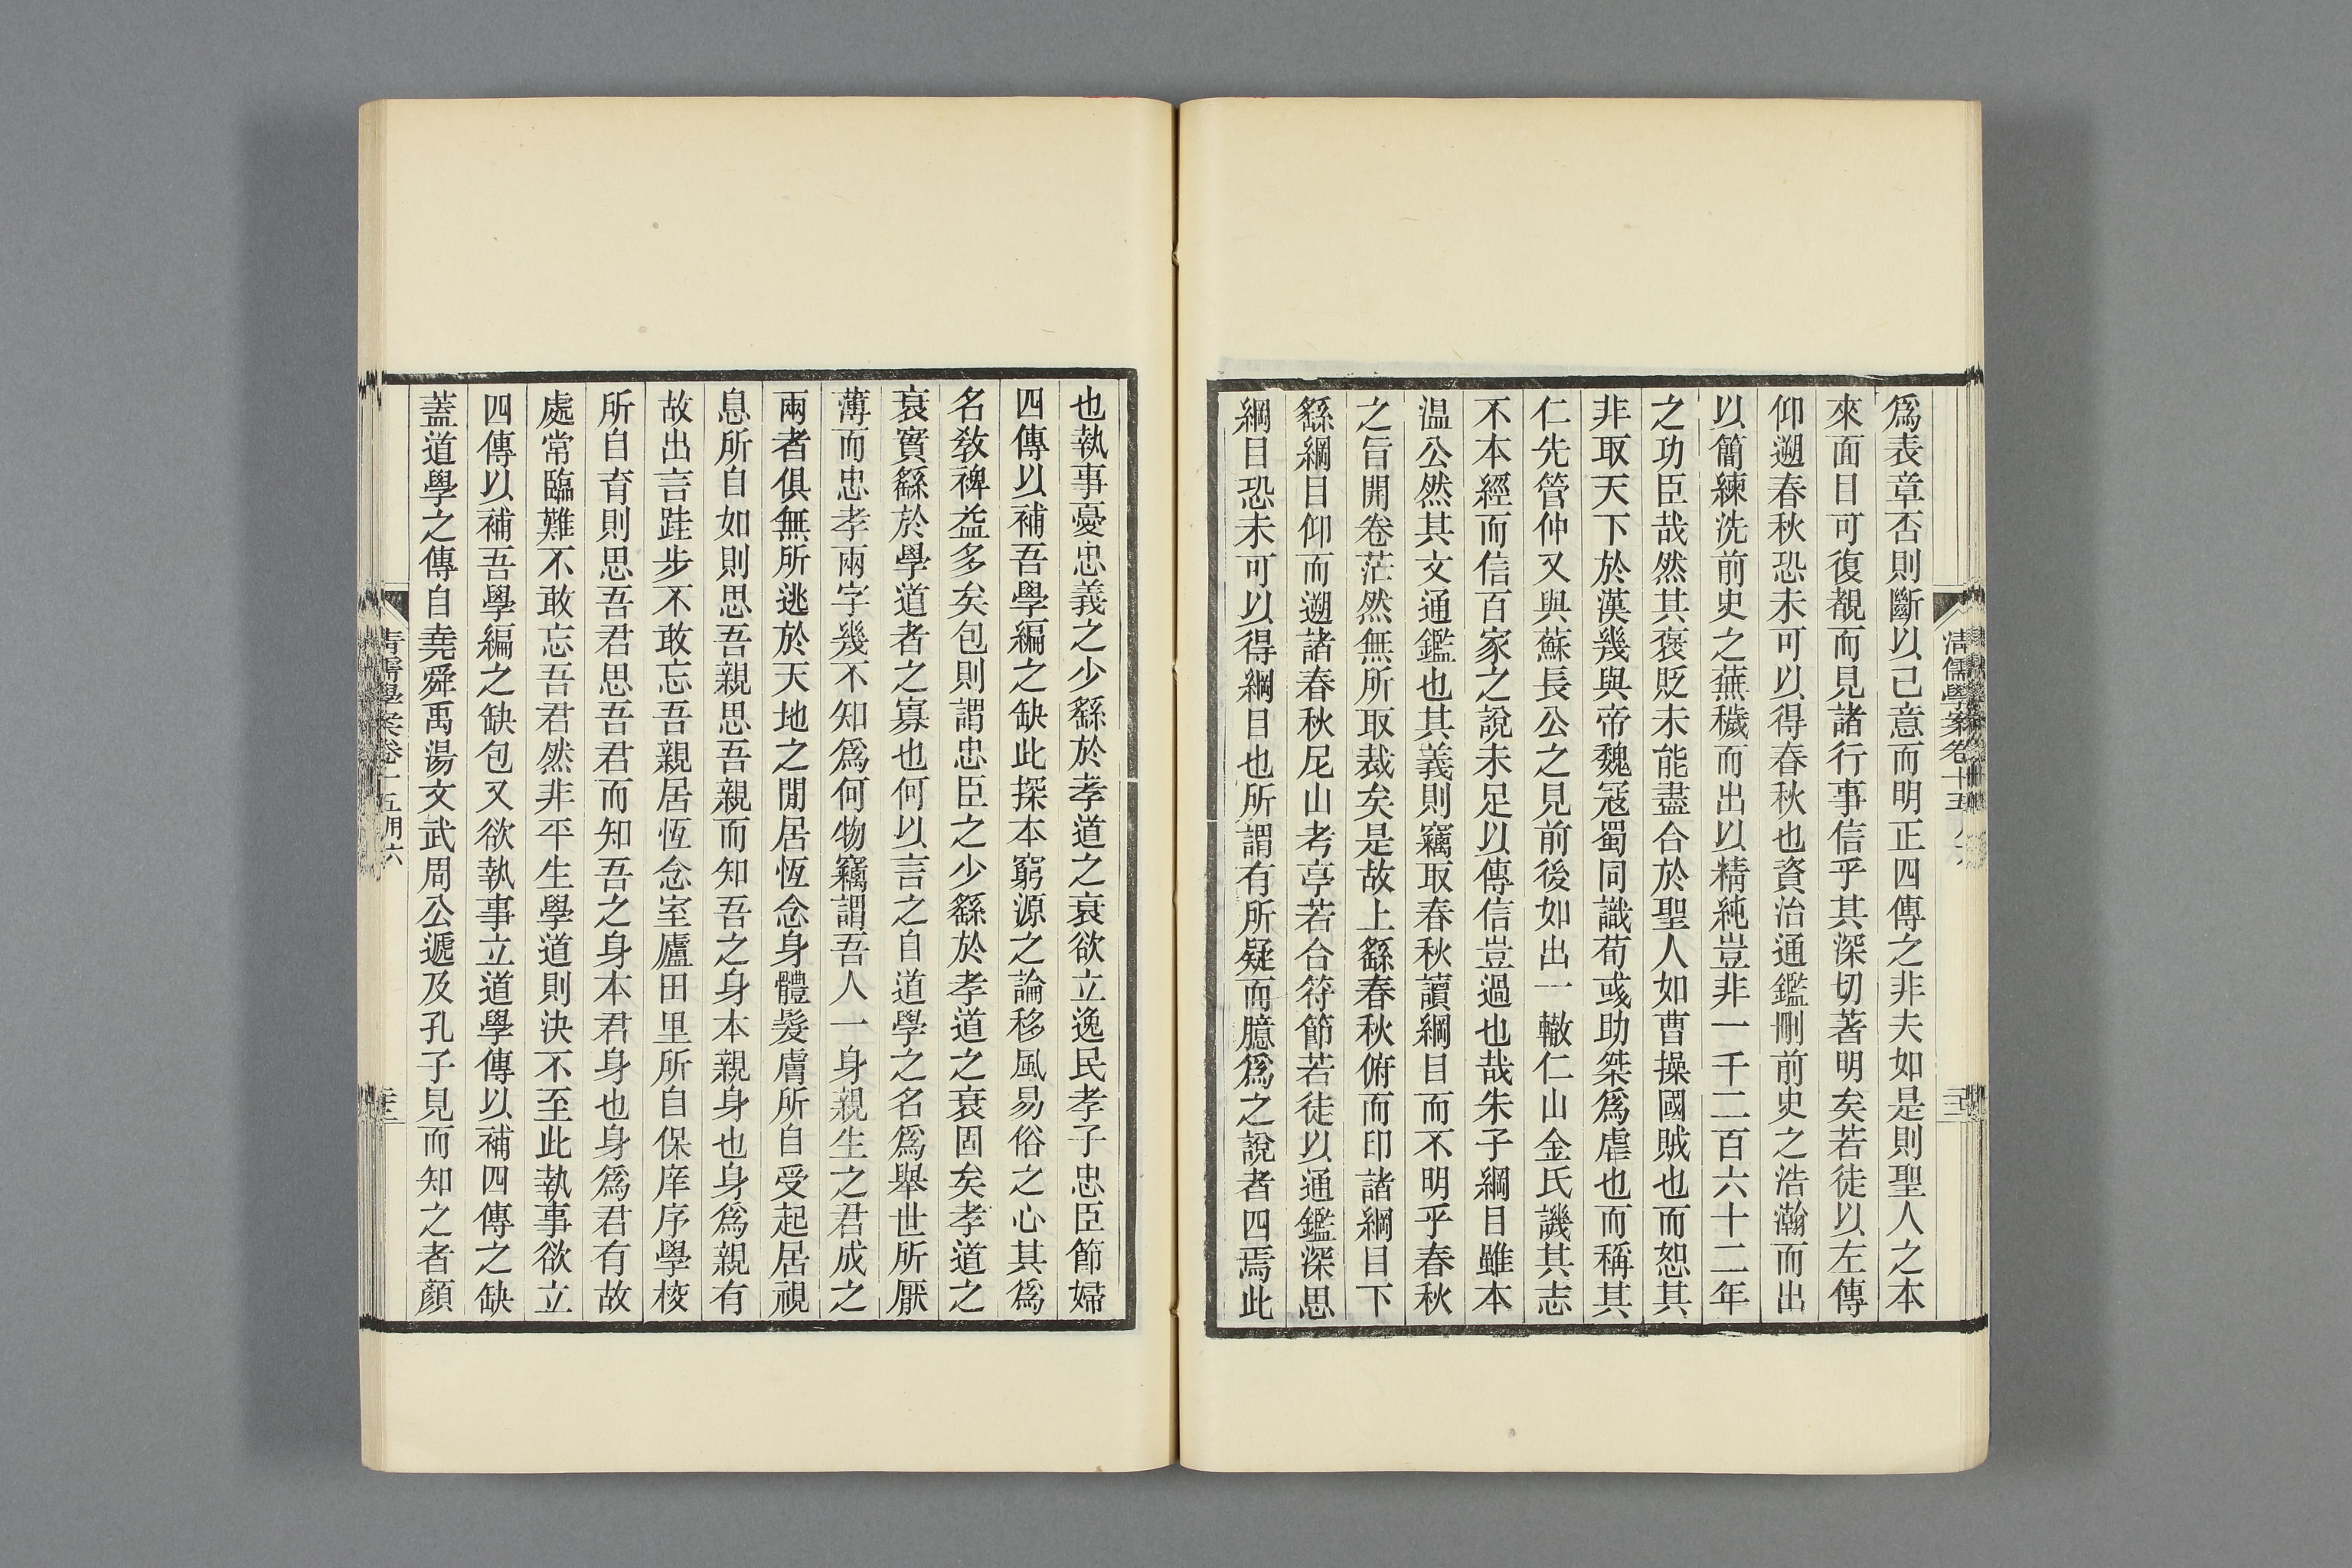 爲表章否則斷以己意而明正四傳之非夫如是則聖人之本
來面目可復覩而見諸行事信乎其深切著明矣若徒以左傳
仰遡春秋恐未可以得春秋也資治通鑑刪前史之浩瀚而出
以簡練洗前史之蕪穢而出以精純豈非一千二百六十二年
之功臣哉然其褒貶未能盡合於聖人如曹操國賊也而恕其
非取天下於漢幾與帝魏寇蜀同識荀彧助桀爲虐也而稱其
仁先管仲又與蘇長公之見前後如出一轍仁山金氏譏其志
不本經而信百家之說未足以傳信豈過也哉朱子綱目雖本
温公然其文通鑑也其義則竊取春秋讀綱目而不明乎春秋
之旨開卷茫然無所取裁矣是故上繇春秋俯而印諸綱目下
繇綱目仰而遡諸春秋尼山考亭若合符節若徒以通鑑深思
綱目恐未可以得綱目也所謂有所疑而臆爲之說者四焉此
也執事憂忠義之少繇於孝道之衰欲立逸民孝子忠臣節婦
四傳以補吾學編之缺此探本窮源之論移風易俗之心其爲
名教裨益多矣包則謂忠臣之少繇於孝道之衰固矣孝道之
衰實繇於學道者之寡也何以言之自道學之名爲舉世所厭
薄而忠孝兩字幾不知爲何物竊謂吾人一身親生之君成之
兩者俱無所逃於天地之閒居恆念身體髮膚所自受起居視
息所自如則思吾親思吾親而知吾之身本親身也身爲親有
故出言跬步不敢忘吾親居恆念室廬田里所自保庠序學校
所自育則思吾君思吾君而知吾之身本君身也身爲君有故
處常臨難不敢忘吾君然非平生學道則決不至此執事欲立
四傳以補吾學編之缺包又欲執事立道學傳以補四傳之缺
蓋道學之傳自堯舜禹湯文武周公遞及孔子見而知之者顏
清儒學案卷十五